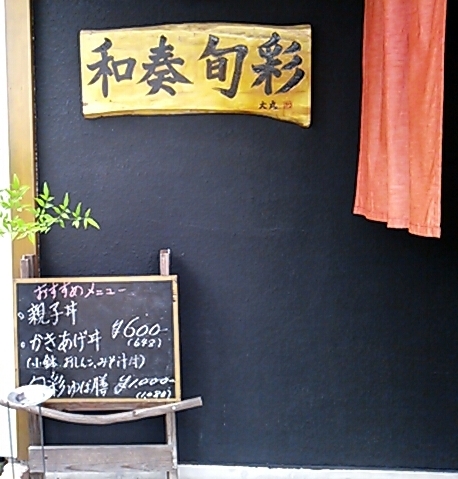 和奏旬彩
大丸
おすすめメニュー
。親子丼
。かきあげ丼 ¥600-
(648)
(小鉢、おしんこ、みそ汁付)
旬彩ゆば膳 ¥1,000-
(1,080)